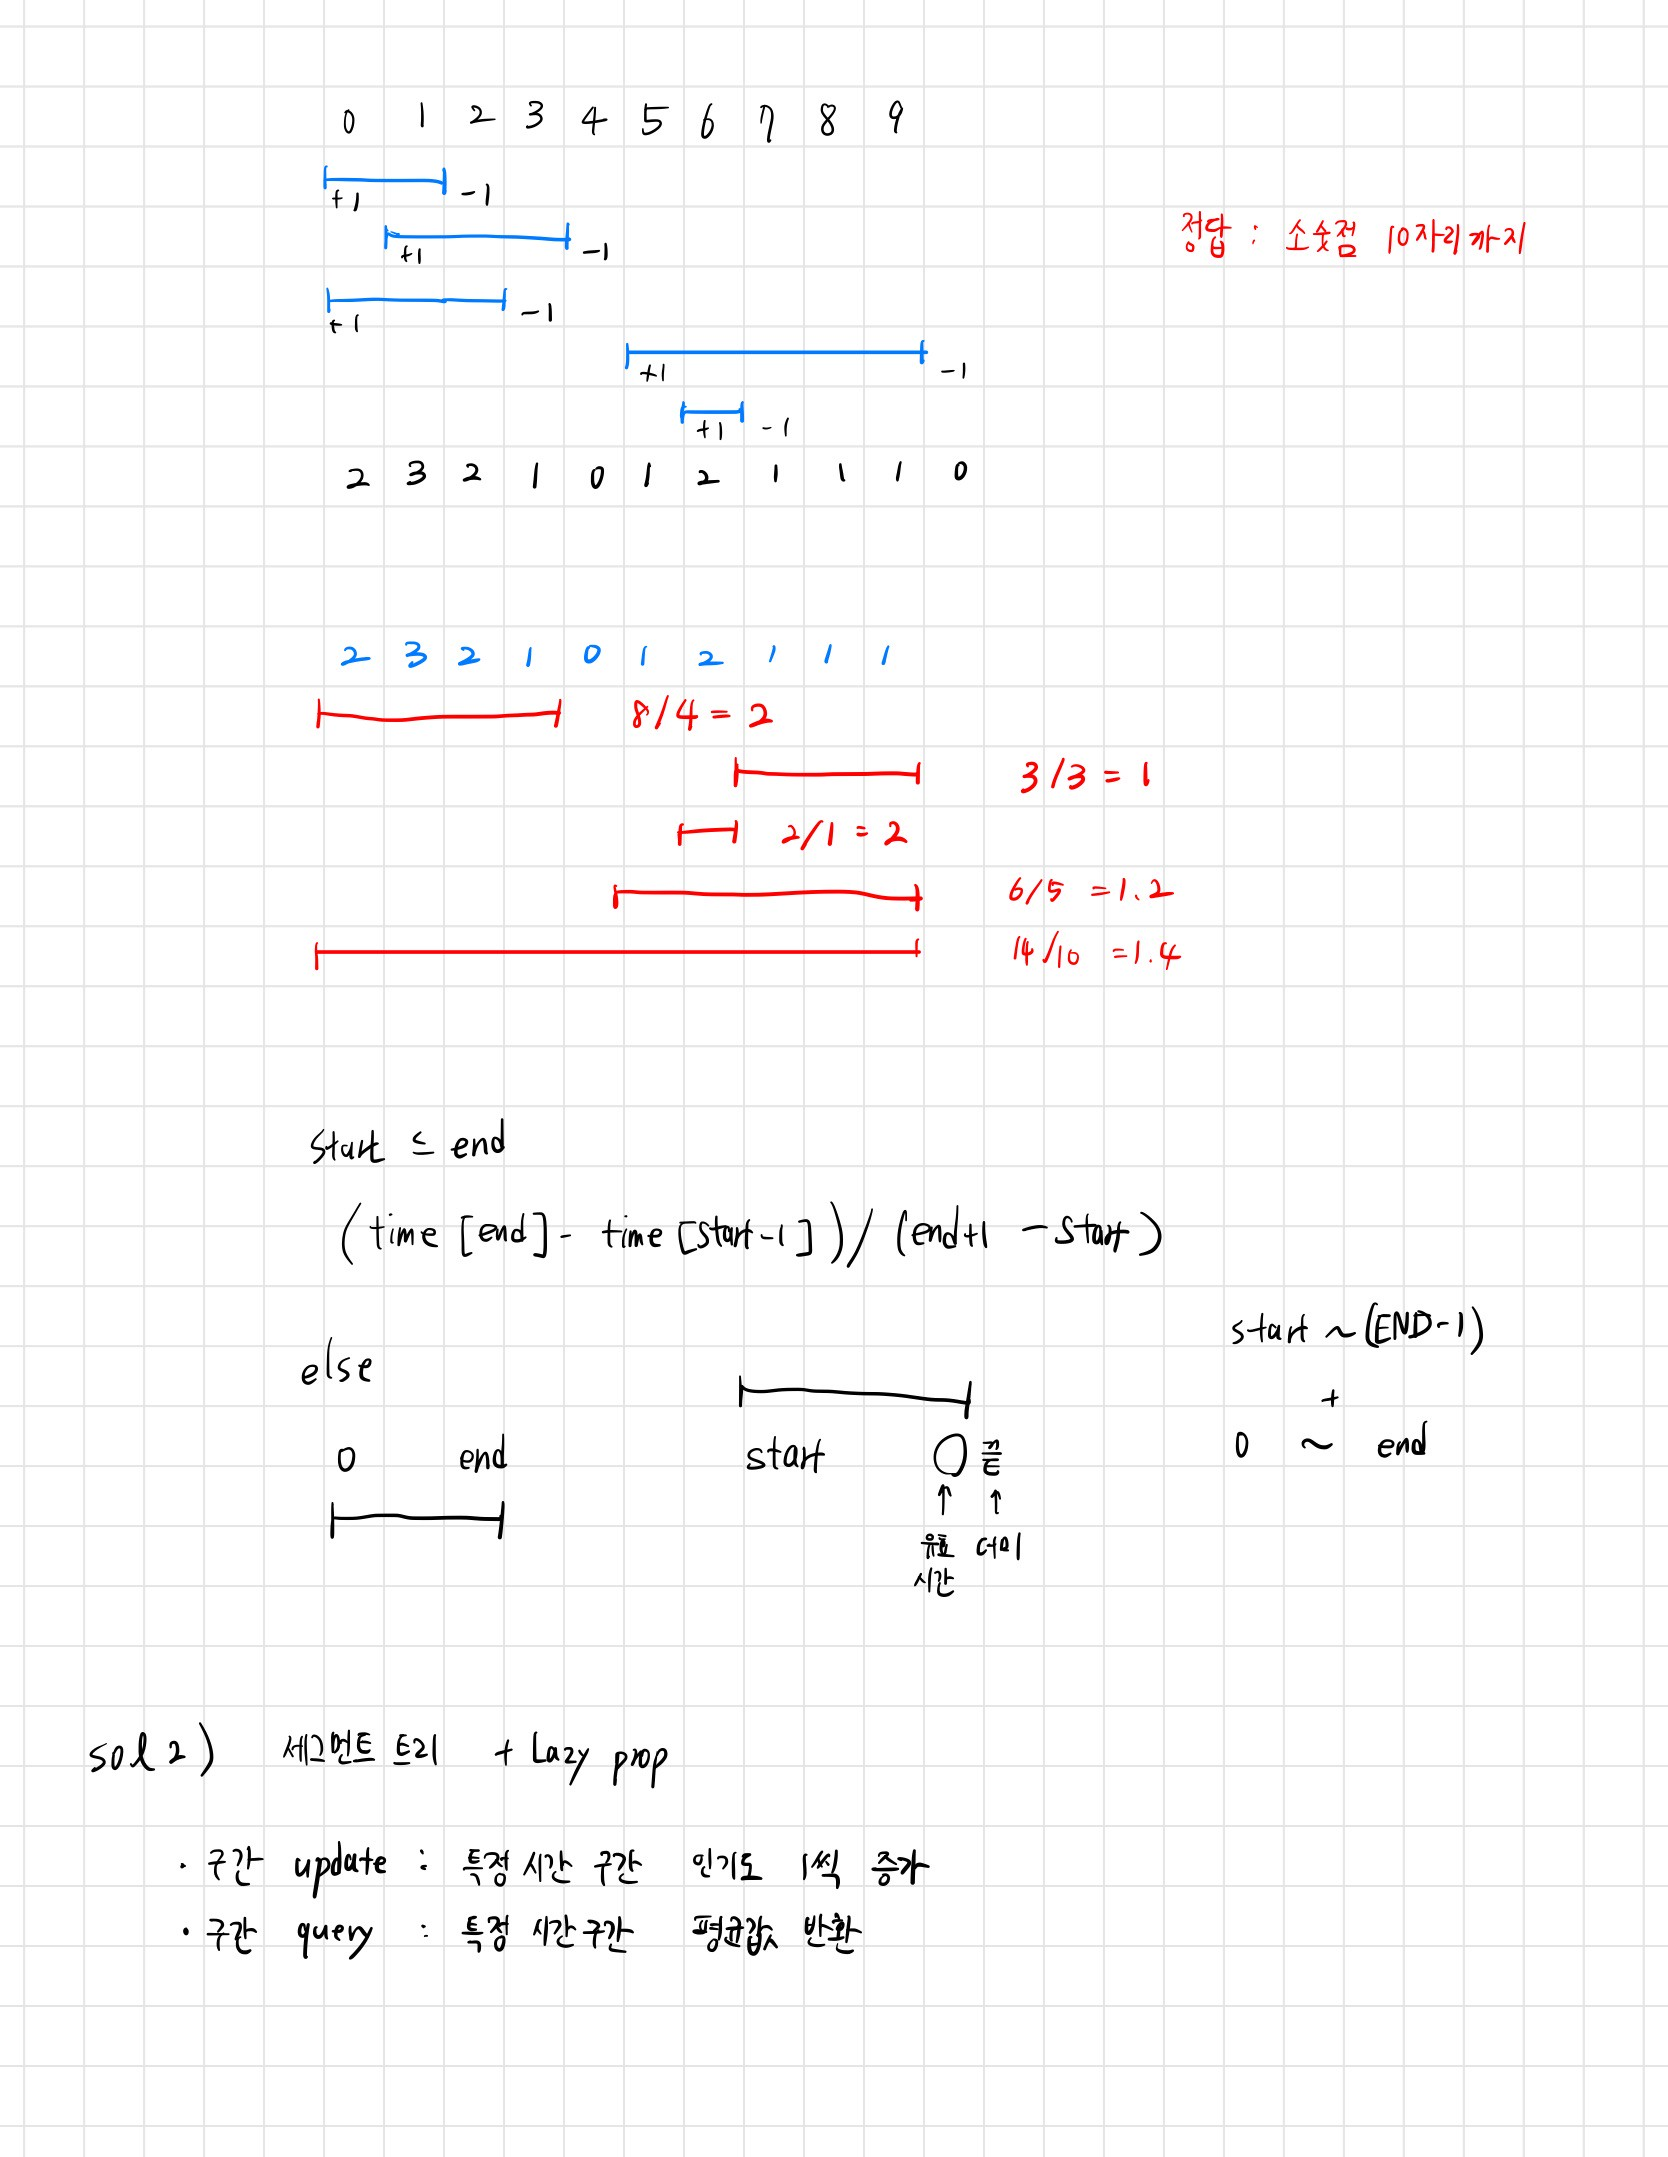 0 1 2 3 4 5 6 7 8 9
+1 -1
정답 : 소숫점 10자리까지
+1 -1
+1 -1
+1 -1
+1 -1
2 3 2 1 0 1 2 1 1 1 0
2 3 2 1 0 1 2 1 1 1
8/4 = 2
3/3 = 1
2/1 = 2
6/5 = 1.2
14/10 = 1.4
start ≤ end
(time [end] - time [start-1]) / (end+1 - start)
start ~ (END-1)
+
0 ~ end
else
0 end
start 끝
↑ ↑
유효 더미
시간
sol 2) 세그먼트 트리 + Lazy prop
· 구간 update : 특정 시간 구간 인기도 1씩 증가
· 구간 query : 특정 시간 구간 평균값 반환